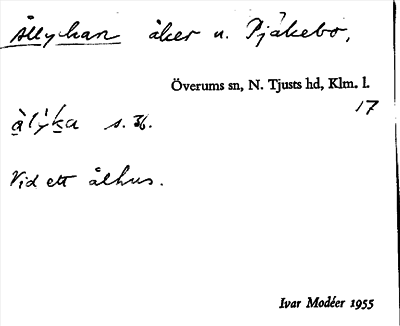 Ållyckan åker u. Pjåkebo,
Överums sn, N. Tjusts hd, Klm. l.
17
s. 36.
Vid ett ålhus.
Ivar Modéer 1955